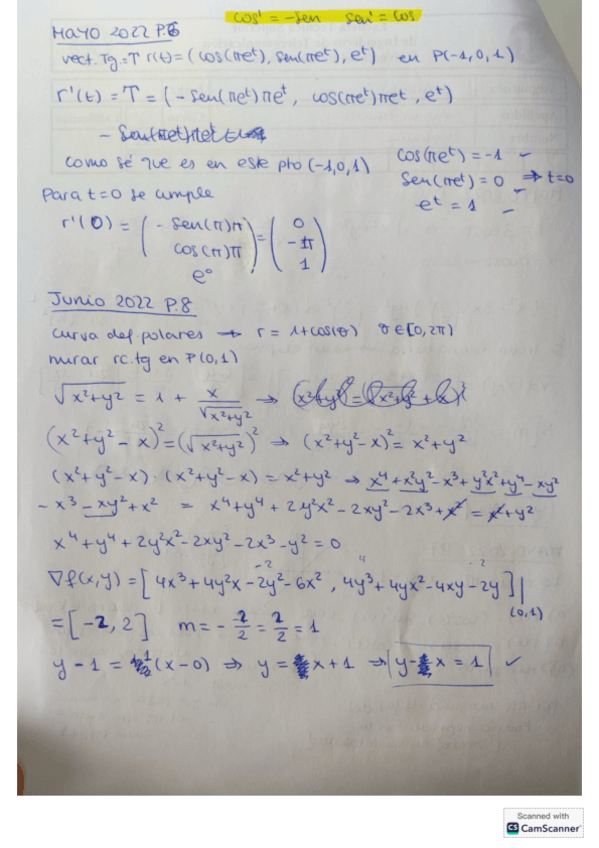 cos' = -sen   sen' = cos
MAYO 2022 P.6
vect. Tg = T r(t) = (cos(πe^t), sen(πe^t), e^t) en P(-1,0,1)
r'(t) = T = (-sen(πe^t)πe^t, cos(πe^t)πe^t, e^t)
como sé que es en este pto (-1,0,1)   cos(πe^t) = -1 ✓
sen(πe^t) = 0 ✓ ⇒ t=0
e^t = 1 ✓
Para t=0 se cumple
r'(0) = (-sen(π)π   cos(π)π   e^0) = (0   -π   1)
Junio 2022 P.8
curva def. polares → r = 1+cos(θ)   θ∈[0,2π)
mirar rc.tg en P(0,1)
√x²+y² = 1 + x/√x²+y² →
(x²+y²-x)² = (√x²+y²)² → (x²+y²-x)² = x²+y²
(x²+y²-x)·(x²+y²-x) = x²+y² → x⁴+x²y²-x³+y²x²+y⁴-xy²
-x³-xy²+x² = x⁴+y⁴+2y²x²-2xy²-2x³+x² = x²+y²
x⁴+y⁴+2y²x²-2xy²-2x³-y² = 0
∇f(x,y) = [4x³+4y²x-2y²-6x², 4y³+4yx²-4xy-2y]|(0,1)
= [-2, 2]   m = - -2/2 = 2/2 = 1
y-1 = 1(x-0) ⇒ y = x+1 ⇒ y-x = 1 ✓
Scanned with
CS CamScanner